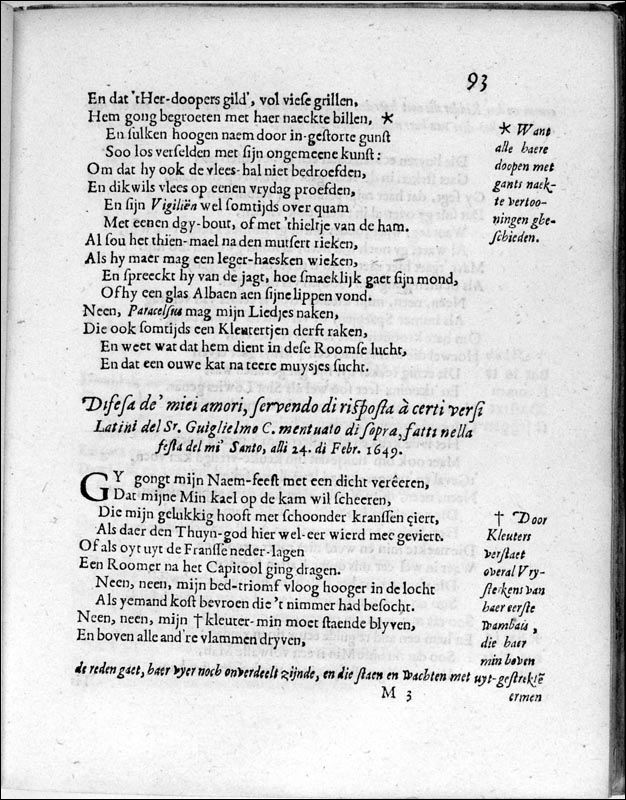 93
En dat 'tHer-doopers gild', vol viese grillen,
Hem gong begroeten met haer naeckte billen, *
En sulken hoogen naem door in-gestorte gunst
Soo los verselden met sijn ongemeene kunst:
Om dat hy ook de vlees-hal niet bedroefden,
En dikwils vlees op eenen vrydag proefden,
En sijn Vigiliën wel somtijds over quam
Met eenen dgy-bout, of met 'thieltje van de ham.
Al sou het thien-mael na den mutsert rieken,
Als hy maer mag een leger-haesken wieken,
En spreeckt hy van de jagt, hoe smaeklijk gaet sijn mond,
Of hy een glas Albaen aen sijne lippen vond.
Neen, Paracelsus mag mijn Liedjes naken,
Die ook somtijds een Kleutertjen derft raken,
En weet wat dat hem dient in dese Roomse lucht,
En dat een ouwe kat na teere muysjes sucht.
* Want
alle haere
doopen met
gants naek-
te vertoo-
ningen ghe-
schieden.
Difesa de' miei amori, servendo di risposta à certi versi
Latini del Sr. Guiglielmo C. mentuato di sopra, fatti nella
festa del mi' Santo, alli 24. di Febr. 1649.
GY gongt mijn Naem-feest met een dicht verêeren,
Dat mijne Min kael op de kam wil scheeren,
Die mijn gelukkig hooft met schoonder kranssen çiert,
Als daer den Thuyn-god hier wel-eer wierd mee geviert.
Of als oyt uyt de Franssе neder-lagen
Een Roomer na het Capitool ging dragen.
Neen, neen, mijn bed-triomf vloog hooger in de locht
Als yemand kost bevroen die 't nimmer had besocht.
Neen, neen, mijn † kleuter-min moet staende blyven,
En boven alle and're vlammen dryven,
† Door
Kleuters
verstaet
overal Vry-
sterkens van
haer eerste
Wambais,
die haer
min boven
de reden gaet, haer vyer noch onverdeelt zijnde, en die staen en wachten met uyt-gestrektẽ
M 3
ermen